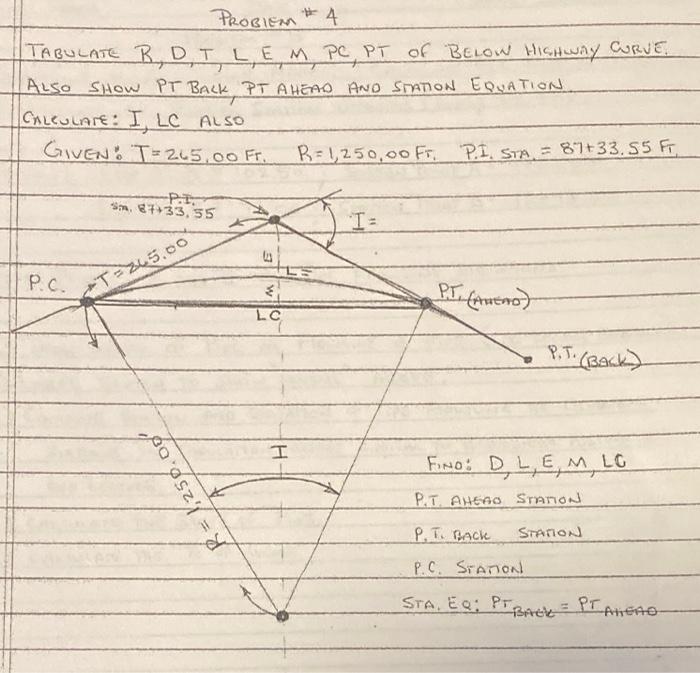 PROBLEM # 4
TABULATE R, D, T, L, E, M, PC, PT OF BELOW HIGHWAY CURVE.
ALSO SHOW PT BACK, PT AHEAD AND STATION EQUATION.
CALCULATE: I, LC ALSO
GIVEN: T=265.00 FT. R=1,250.00 FT. P.I. STA. = 87+33.55 FT.
P.I.
STA. 87+33.55
I =
T=265.00'
E
L=
P.C.
M
P.T. (AHEAD)
LC
P.T. (BACK)
R = 1,250.00'
I
FIND: D, L, E, M, LC
P.T. AHEAD STATION
P.T. BACK STATION
P.C. STATION
STA. EQ: PT BACK = PT AHEAD